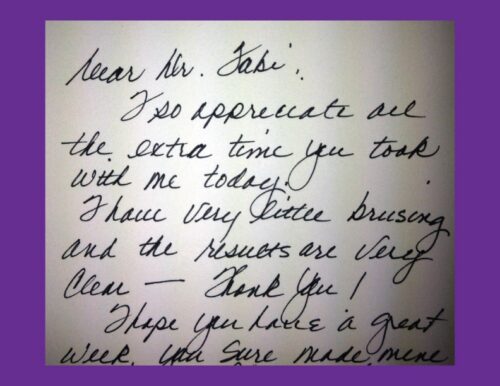 Dear Dr. Fabi,
I so appreciate all
the extra time you took
with me today.
I have very little brusing
and the results are very
clear — Thank you!
I hope you have a great
week, you sure made mine